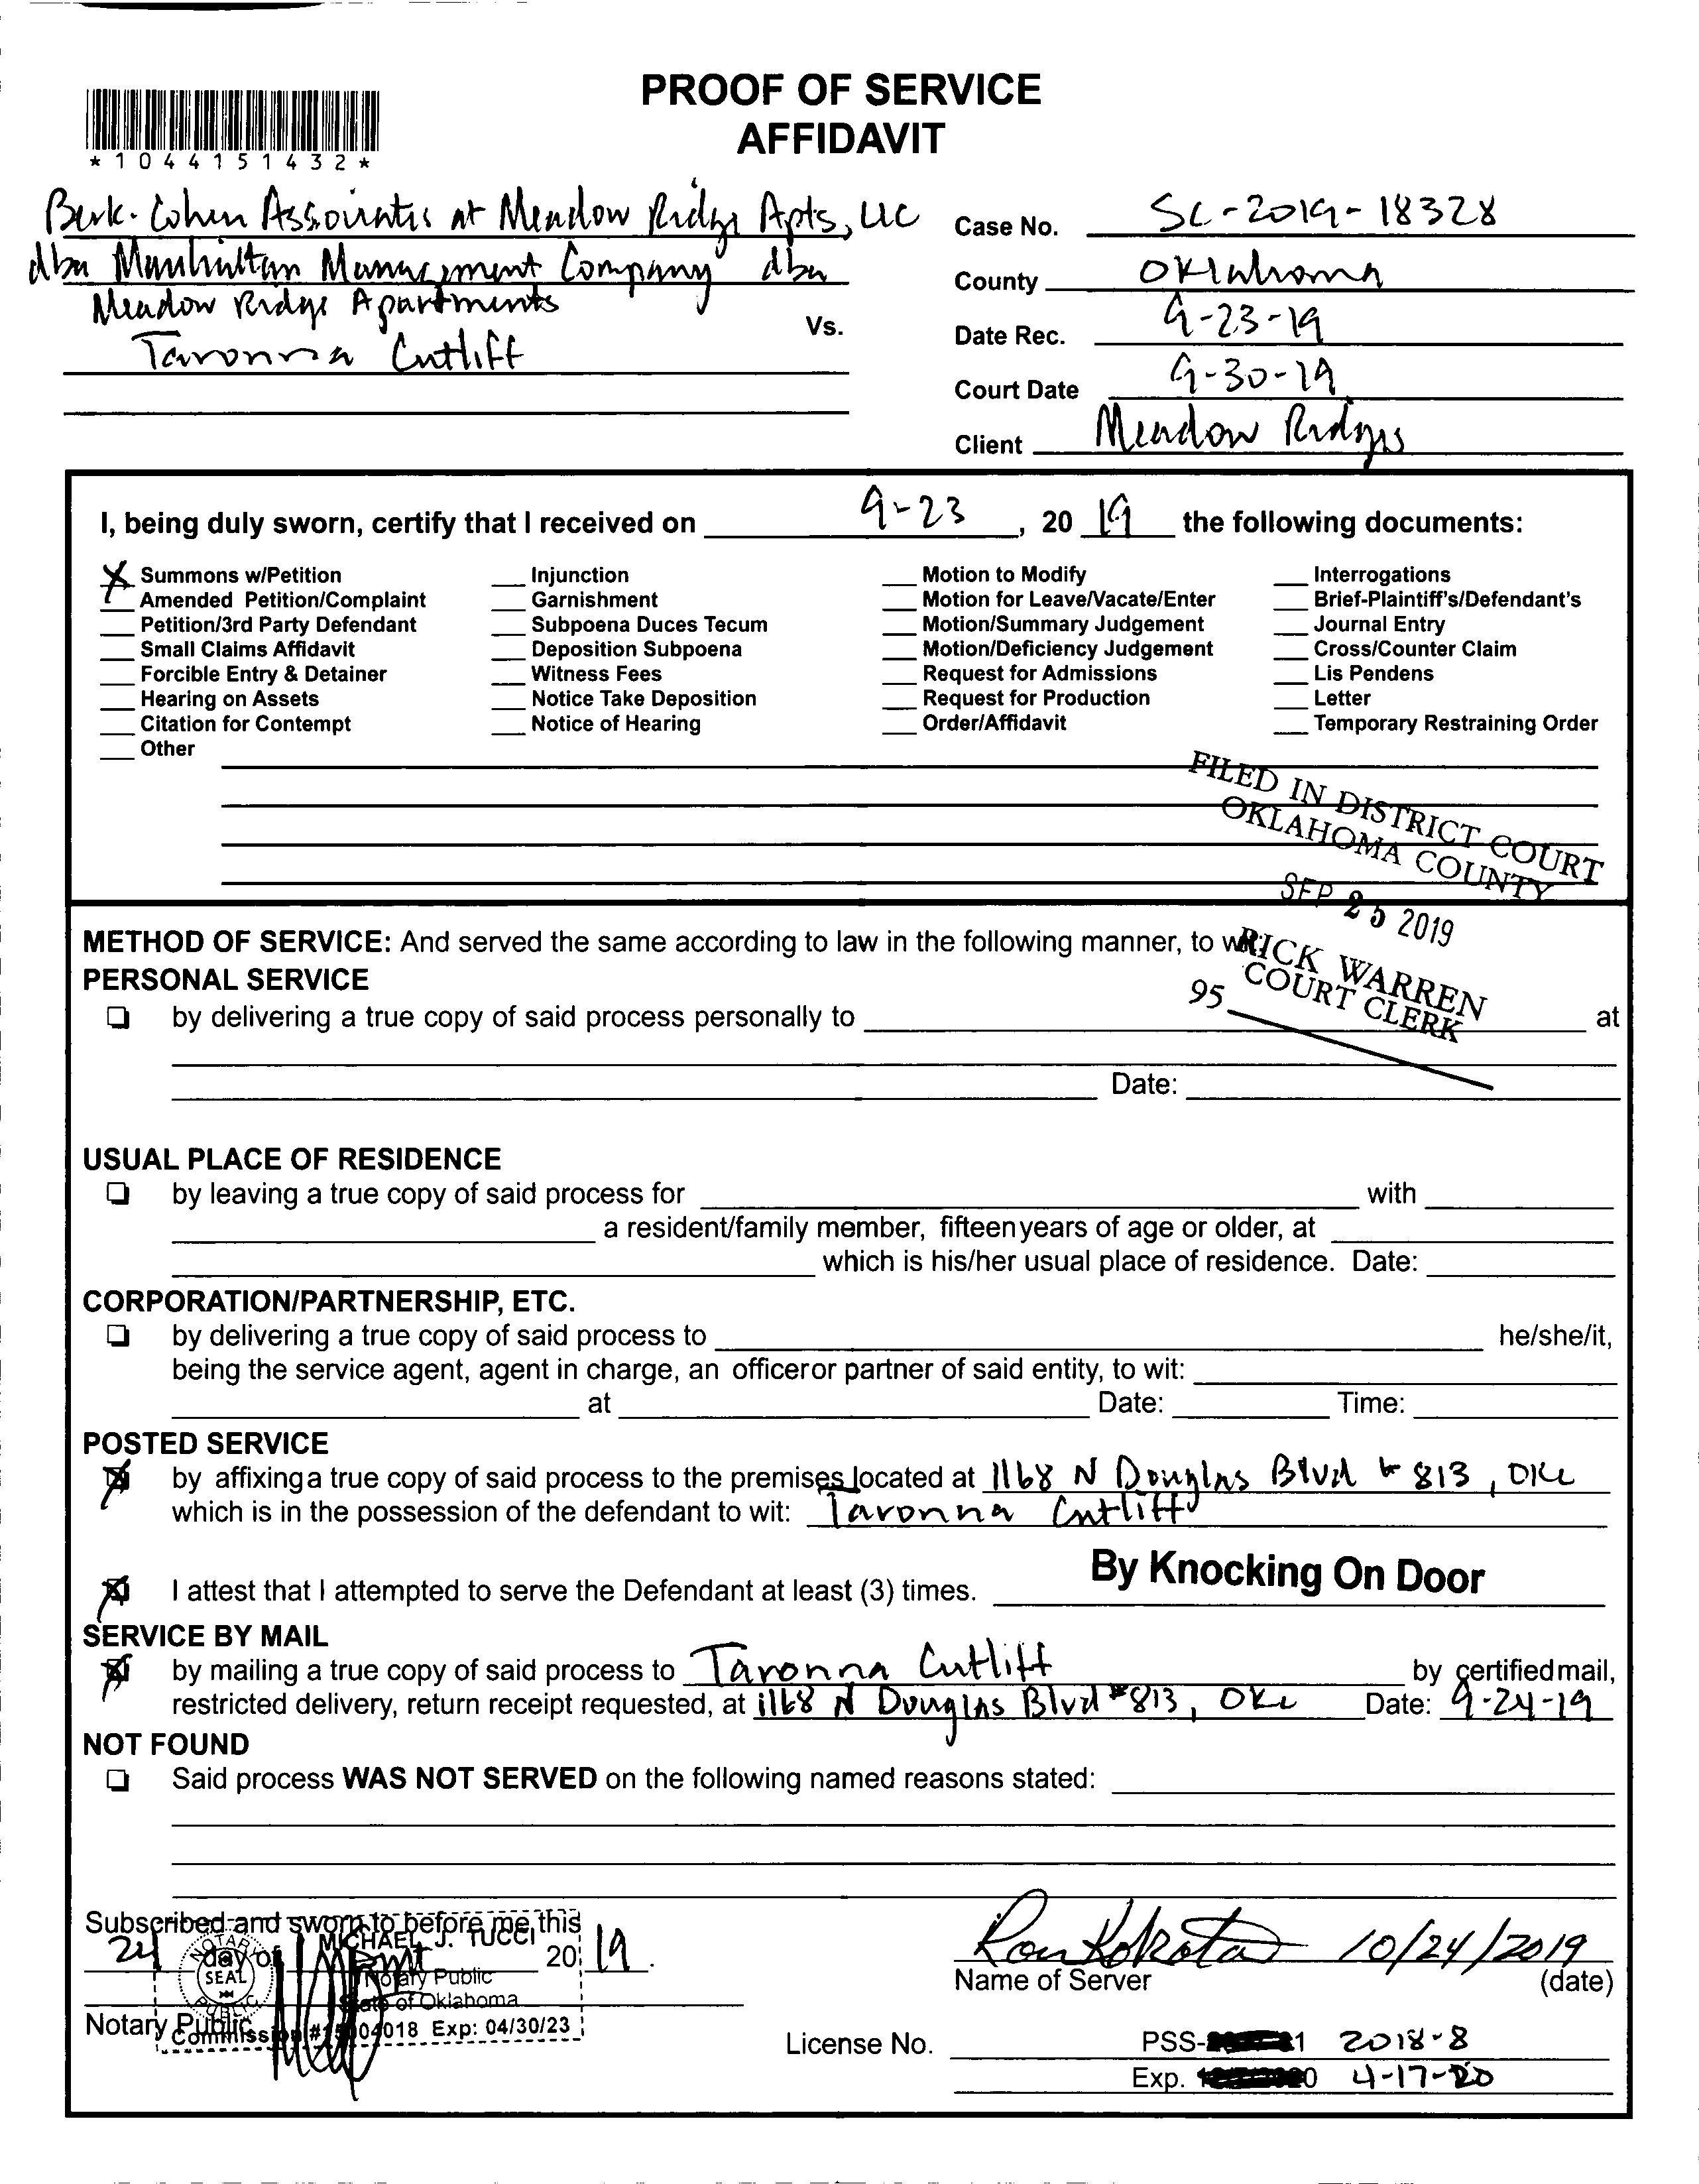 PROOF OF SERVICE
AFFIDAVIT
*1044151432*
Berk-Cohen Associates at Meadow Ridge Apts, LLC
dba Manhattan Management Company dba
Meadow Ridge Apartments
Vs.
Taronna Cutliff
Case No. SC-2019-18328
County Oklahoma
Date Rec. 9-23-19
Court Date 9-30-19
Client Meadow Ridge
I, being duly sworn, certify that I received on 9-23, 20 19 the following documents:
X Summons w/Petition
__ Amended Petition/Complaint
__ Petition/3rd Party Defendant
__ Small Claims Affidavit
__ Forcible Entry & Detainer
__ Hearing on Assets
__ Citation for Contempt
__ Other
__ Injunction
__ Garnishment
__ Subpoena Duces Tecum
__ Deposition Subpoena
__ Witness Fees
__ Notice Take Deposition
__ Notice of Hearing
__ Motion to Modify
__ Motion for Leave/Vacate/Enter
__ Motion/Summary Judgement
__ Motion/Deficiency Judgement
__ Request for Admissions
__ Request for Production
__ Order/Affidavit
__ Interrogations
__ Brief-Plaintiff's/Defendant's
__ Journal Entry
__ Cross/Counter Claim
__ Lis Pendens
__ Letter
__ Temporary Restraining Order
FILED IN DISTRICT COURT
OKLAHOMA COUNTY
SEP 25 2019
RICK WARREN
COURT CLERK
95
METHOD OF SERVICE: And served the same according to law in the following manner, to w
PERSONAL SERVICE
by delivering a true copy of said process personally to at
Date:
USUAL PLACE OF RESIDENCE
by leaving a true copy of said process for with
a resident/family member, fifteen years of age or older, at
which is his/her usual place of residence. Date:
CORPORATION/PARTNERSHIP, ETC.
by delivering a true copy of said process to he/she/it,
being the service agent, agent in charge, an officer or partner of said entity, to wit:
at Date: Time:
POSTED SERVICE
by affixing a true copy of said process to the premises located at 1168 N Douglas Blvd # 813, OKC
which is in the possession of the defendant to wit: Taronna Cutliff
I attest that I attempted to serve the Defendant at least (3) times. By Knocking On Door
SERVICE BY MAIL
by mailing a true copy of said process to Taronna Cutliff by certified mail,
restricted delivery, return receipt requested, at 1168 N Douglas Blvd #813, OKC Date: 9-24-19
NOT FOUND
Said process WAS NOT SERVED on the following named reasons stated:
Subscribed and sworn to before me this
24 day of 20 19.
Notary Public
MICHAEL J. TUCCI
Notary Public
State of Oklahoma
Commission # 04018 Exp: 04/30/23
NOTARY PUBLIC SEAL
Ron Kokota 10/24/2019
Name of Server (date)
License No. PSS- 1 2018-8
Exp. 0 4-17-20